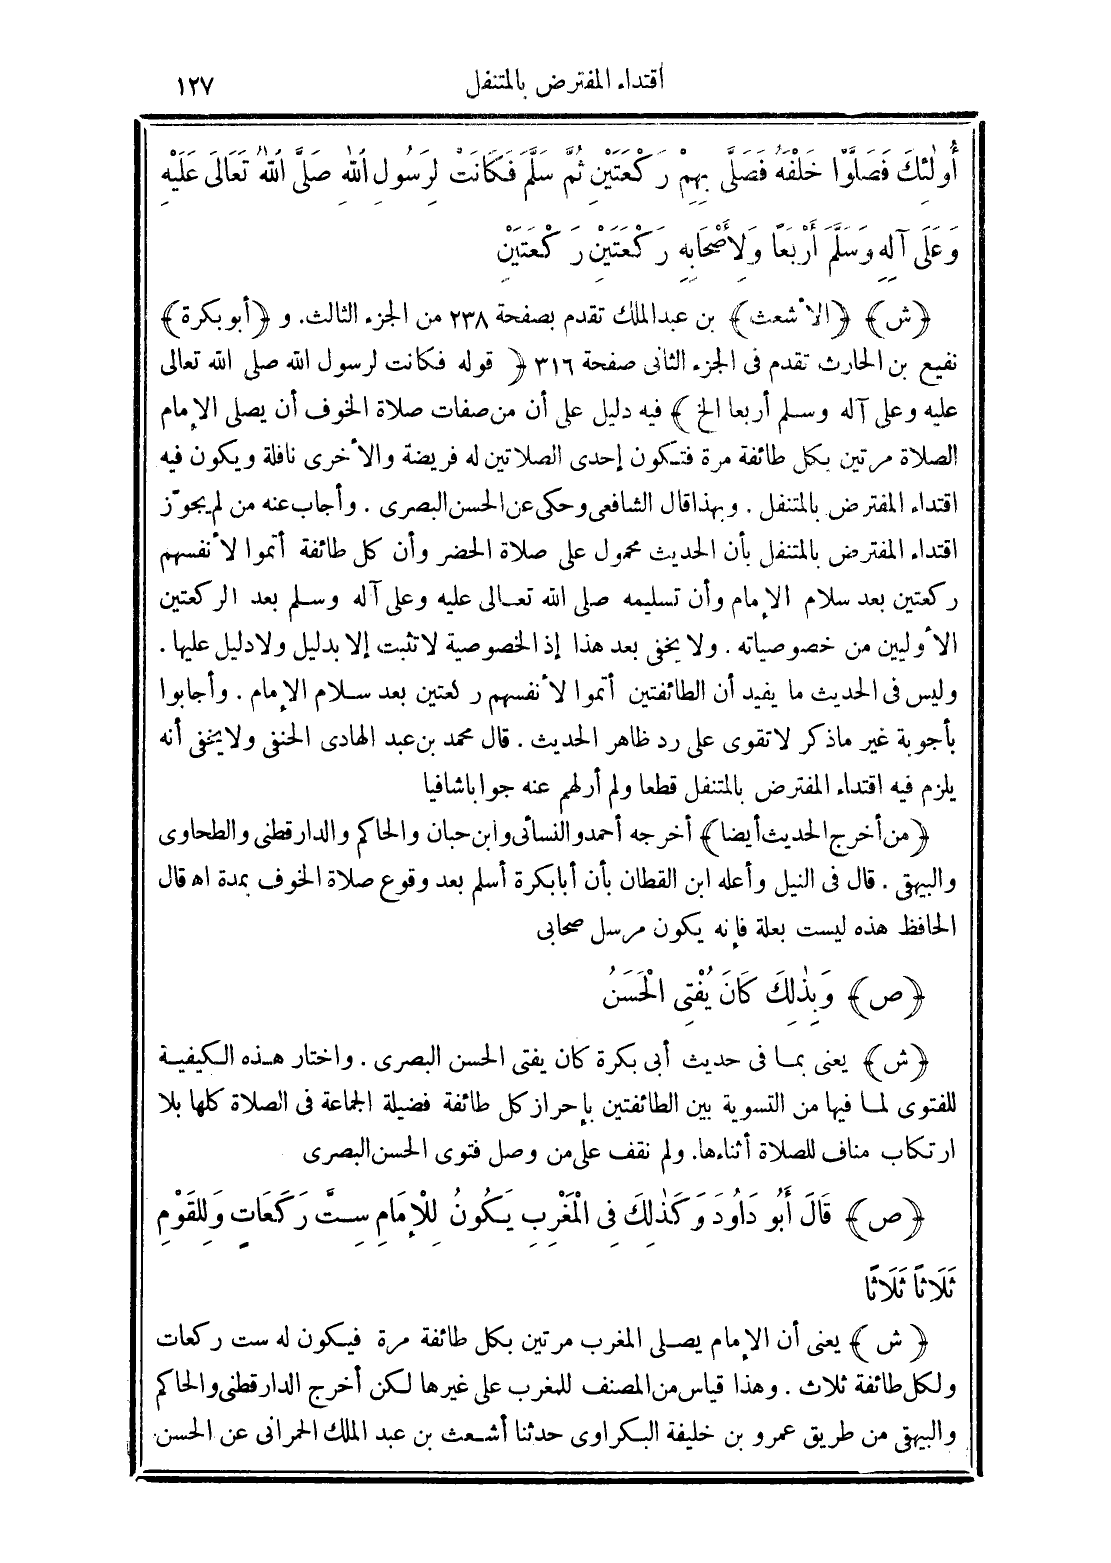 اقتداء المفترض بالمتنفل ١٢٧
أُولٰئِكَ فَصَلَّوْا خَلْفَهُ فَصَلَّى بِهِمْ رَكْعَتَيْنِ ثُمَّ سَلَّمَ فَكَانَتْ لِرَسُولِ اللهِ صَلَّى اللهُ تَعَالَى عَلَيْهِ
وَعَلَى آلِهِ وَسَلَّمَ أَرْبَعًا وَلِأَصْحَابِهِ رَكْعَتَيْنِ رَكْعَتَيْنِ
﴿ش﴾ ﴿الأشعث﴾ بن عبدالملك تقدم بصفحة ٢٣٨ من الجزء الثالث. و ﴿أبو بكرة﴾
نفيع بن الحارث تقدم فى الجزء الثانى صفحة ٣١٦ ﴿ قوله فكانت لرسول الله صلى الله تعالى
عليه وعلى آله وسلم أربعا الخ ﴾ فيه دليل على أن من صفات صلاة الخوف أن يصلى الإمام
الصلاة مرتين بكل طائفة مرة فتكون إحدى الصلاتين له فريضة والأخرى نافلة ويكون فيه
اقتداء المفترض بالمتنفل . وبهذا قال الشافعى وحكى عن الحسن البصرى . وأجاب عنه من لم يجوّز
اقتداء المفترض بالمتنفل بأن الحديث محمول على صلاة الحضر وأن كل طائفة أتموا لأنفسهم
ركعتين بعد سلام الإمام وأن تسليمه صلى الله تعالى عليه وعلى آله وسلم بعد الركعتين
الأوليين من خصوصياته . ولا يخفى بعد هذا إذ الخصوصية لا تثبت إلا بدليل ولا دليل عليها .
وليس فى الحديث ما يفيد أن الطائفتين أتموا لأنفسهم ركعتين بعد سلام الإمام . وأجابوا
بأجوبة غير ماذكر لا تقوى على رد ظاهر الحديث . قال محمد بن عبد الهادى الحنفى ولا يخفى أنه
يلزم فيه اقتداء المفترض بالمتنفل قطعا ولم أر لهم عنه جوابا شافيا
﴿من أخرج الحديث أيضا﴾ أخرجه أحمد والنسائى وابن حبان والحاكم والدارقطنى والطحاوى
والبيهقى . قال فى النيل وأعله ابن القطان بأن أبا بكرة أسلم بعد وقوع صلاة الخوف بمدة اه قال
الحافظ هذه ليست بعلة فإنه يكون مرسل صحابى
﴿ص﴾ وَبِذٰلِكَ كَانَ يُفْتِى الْحَسَنُ
﴿ش﴾ يعنى بما فى حديث أبى بكرة كان يفتى الحسن البصرى . واختار هذه الكيفية
للفتوى لما فيها من التسوية بين الطائفتين بإحراز كل طائفة فضيلة الجماعة فى الصلاة كلها بلا
ارتكاب مناف للصلاة أثناءها. ولم نقف على من وصل فتوى الحسن البصرى
﴿ص﴾ قَالَ أَبُو دَاوُدَ وَكَذٰلِكَ فِى الْمَغْرِبِ يَكُونُ لِلْإِمَامِ سِتَّ رَكَعَاتٍ وَلِلْقَوْمِ
ثَلَاثًا ثَلَاثًا
﴿ش﴾ يعنى أن الإمام يصلى المغرب مرتين بكل طائفة مرة فيكون له ست ركعات
ولكل طائفة ثلاث . وهذا قياس من المصنف للمغرب على غيرها لكن أخرج الدارقطنى والحاكم
والبيهقى من طريق عمرو بن خليفة البكراوى حدثنا أشعث بن عبد الملك الحمرانى عن الحسن